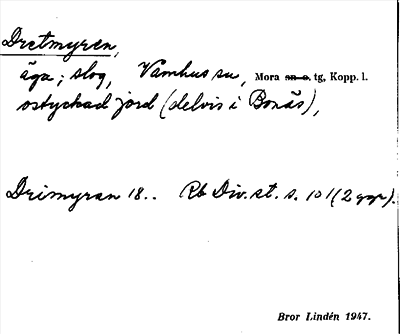 Dretmyren,
äga; slog, Våmhus su, Mora sn o. tg, Kopp. l.
ostyckad jord (delvis i Bonäs),
Dreimyran 18.. Rb Div. st. s. 101 (2 ggr).
Bror Lindén 1947.